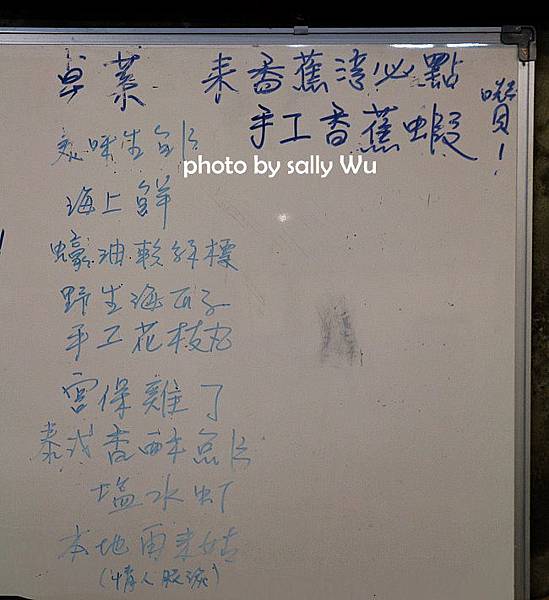 卓蔡 来香蕉湾必點
手工香蕉蝦
嘗!
美味生魚片
photo by sally Wu
海上鮮
蠔油軟絲標
野生海瓜子
手工花枝丸
宮保雞丁
泰式香酥魚片
塩水虾
本地雨来菇
(情人眼淚)